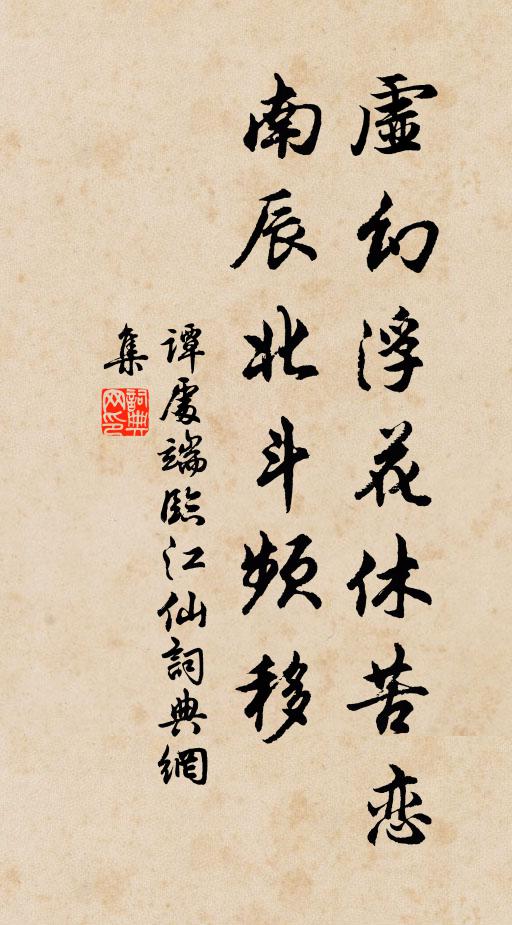 虛幻浮花休苦恋
南辰北斗頻移
譚處端臨江仙詞典網
集
詞典网印